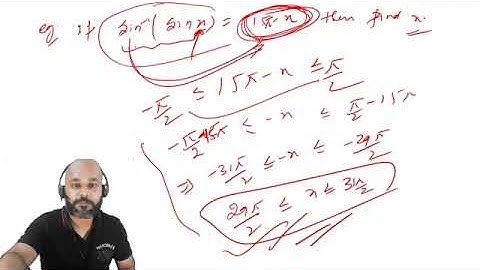 eg if sin⁻¹(sin x) = 15π-x then find x.
-π/2 ≤ 15π-x ≤ π/2
-π/2-15π ≤ -x ≤ π/2-15π
⇒ -31π/2 ≤ -x ≤ -29π/2
29π/2 ≤ x ≤ 31π/2